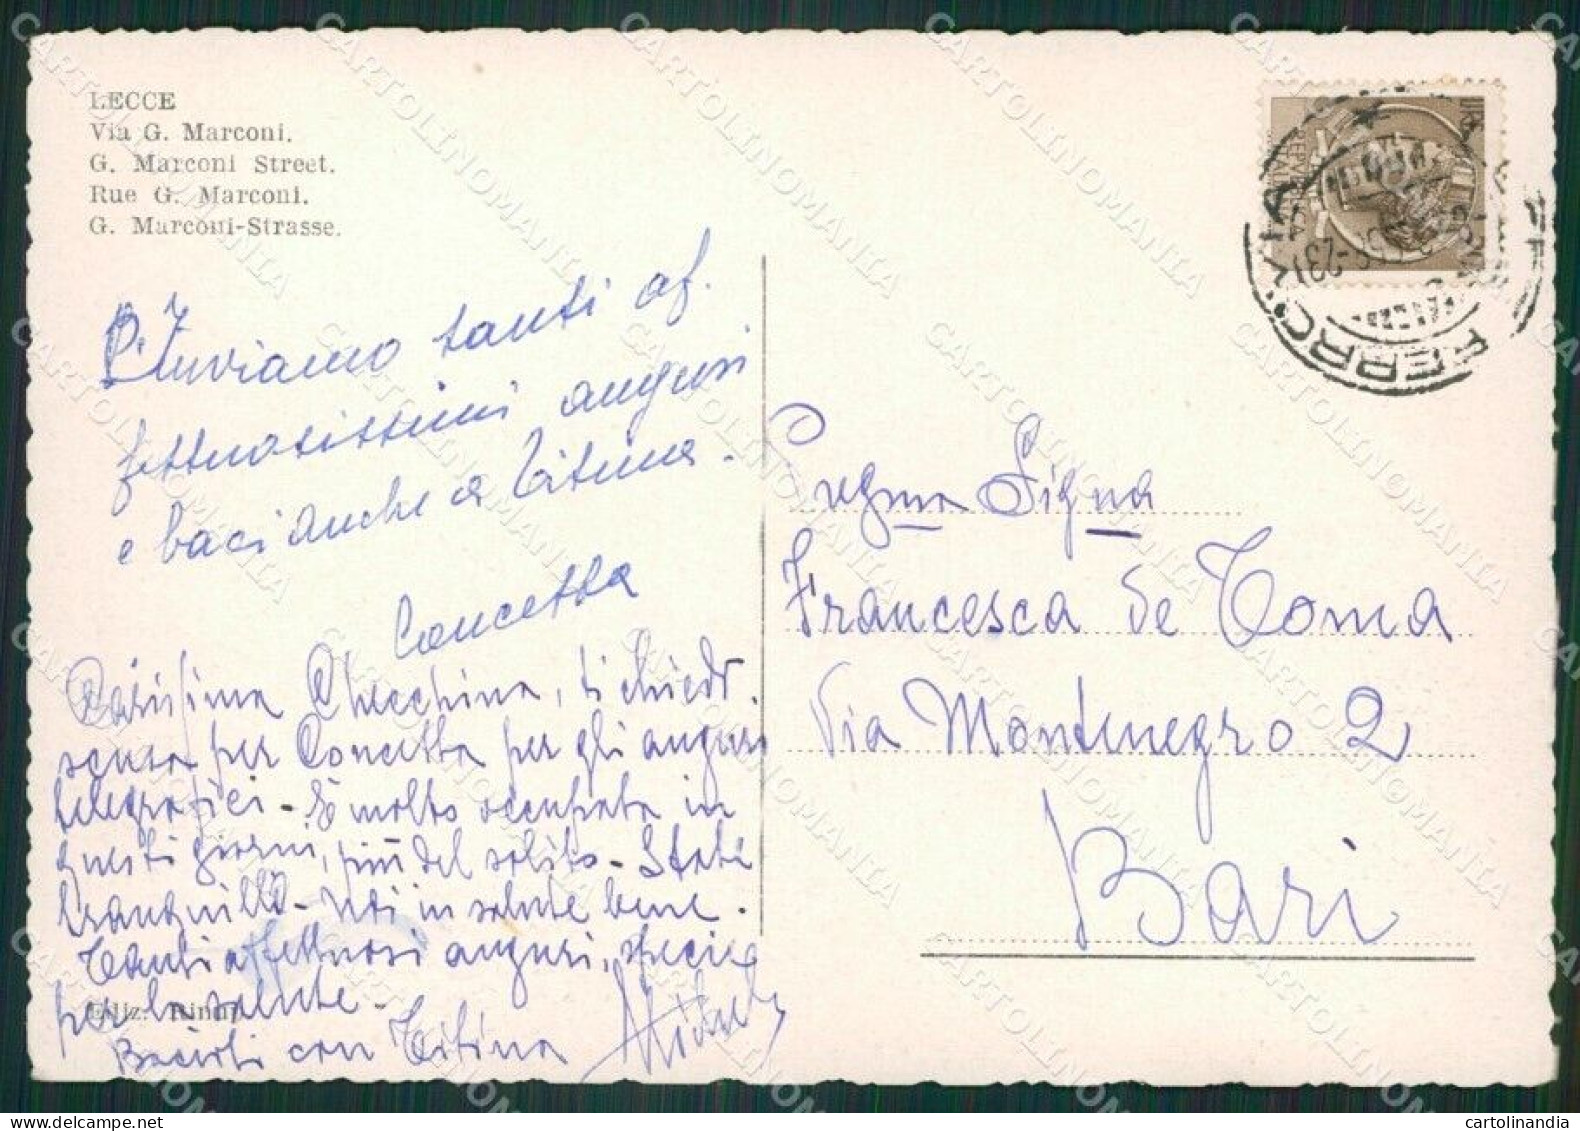 LECCE
Via G. Marconi.
G. Marconi Street.
Rue G. Marconi.
G. Marconi-Strasse.
Inviamo tanti af.
fettuosissimi auguri
e baci anche a Titina.
Concetta
Carissima Checchina, ti chiedo
scusa per Concetta per gli auguri
telegrafici - È molto occupata in
questi giorni, più del solito - State
tranquilli - Noi in salute bene.
Tanti affettuosi auguri, specie
per la salute -
Bacioti con Titina
Ediz.
Pregma Signa
Francesca De Toma
Via Montenegro 2
Bari
REP. ITALIANA
FERROVIA
CARTOLINOMANIA
cartolinandia